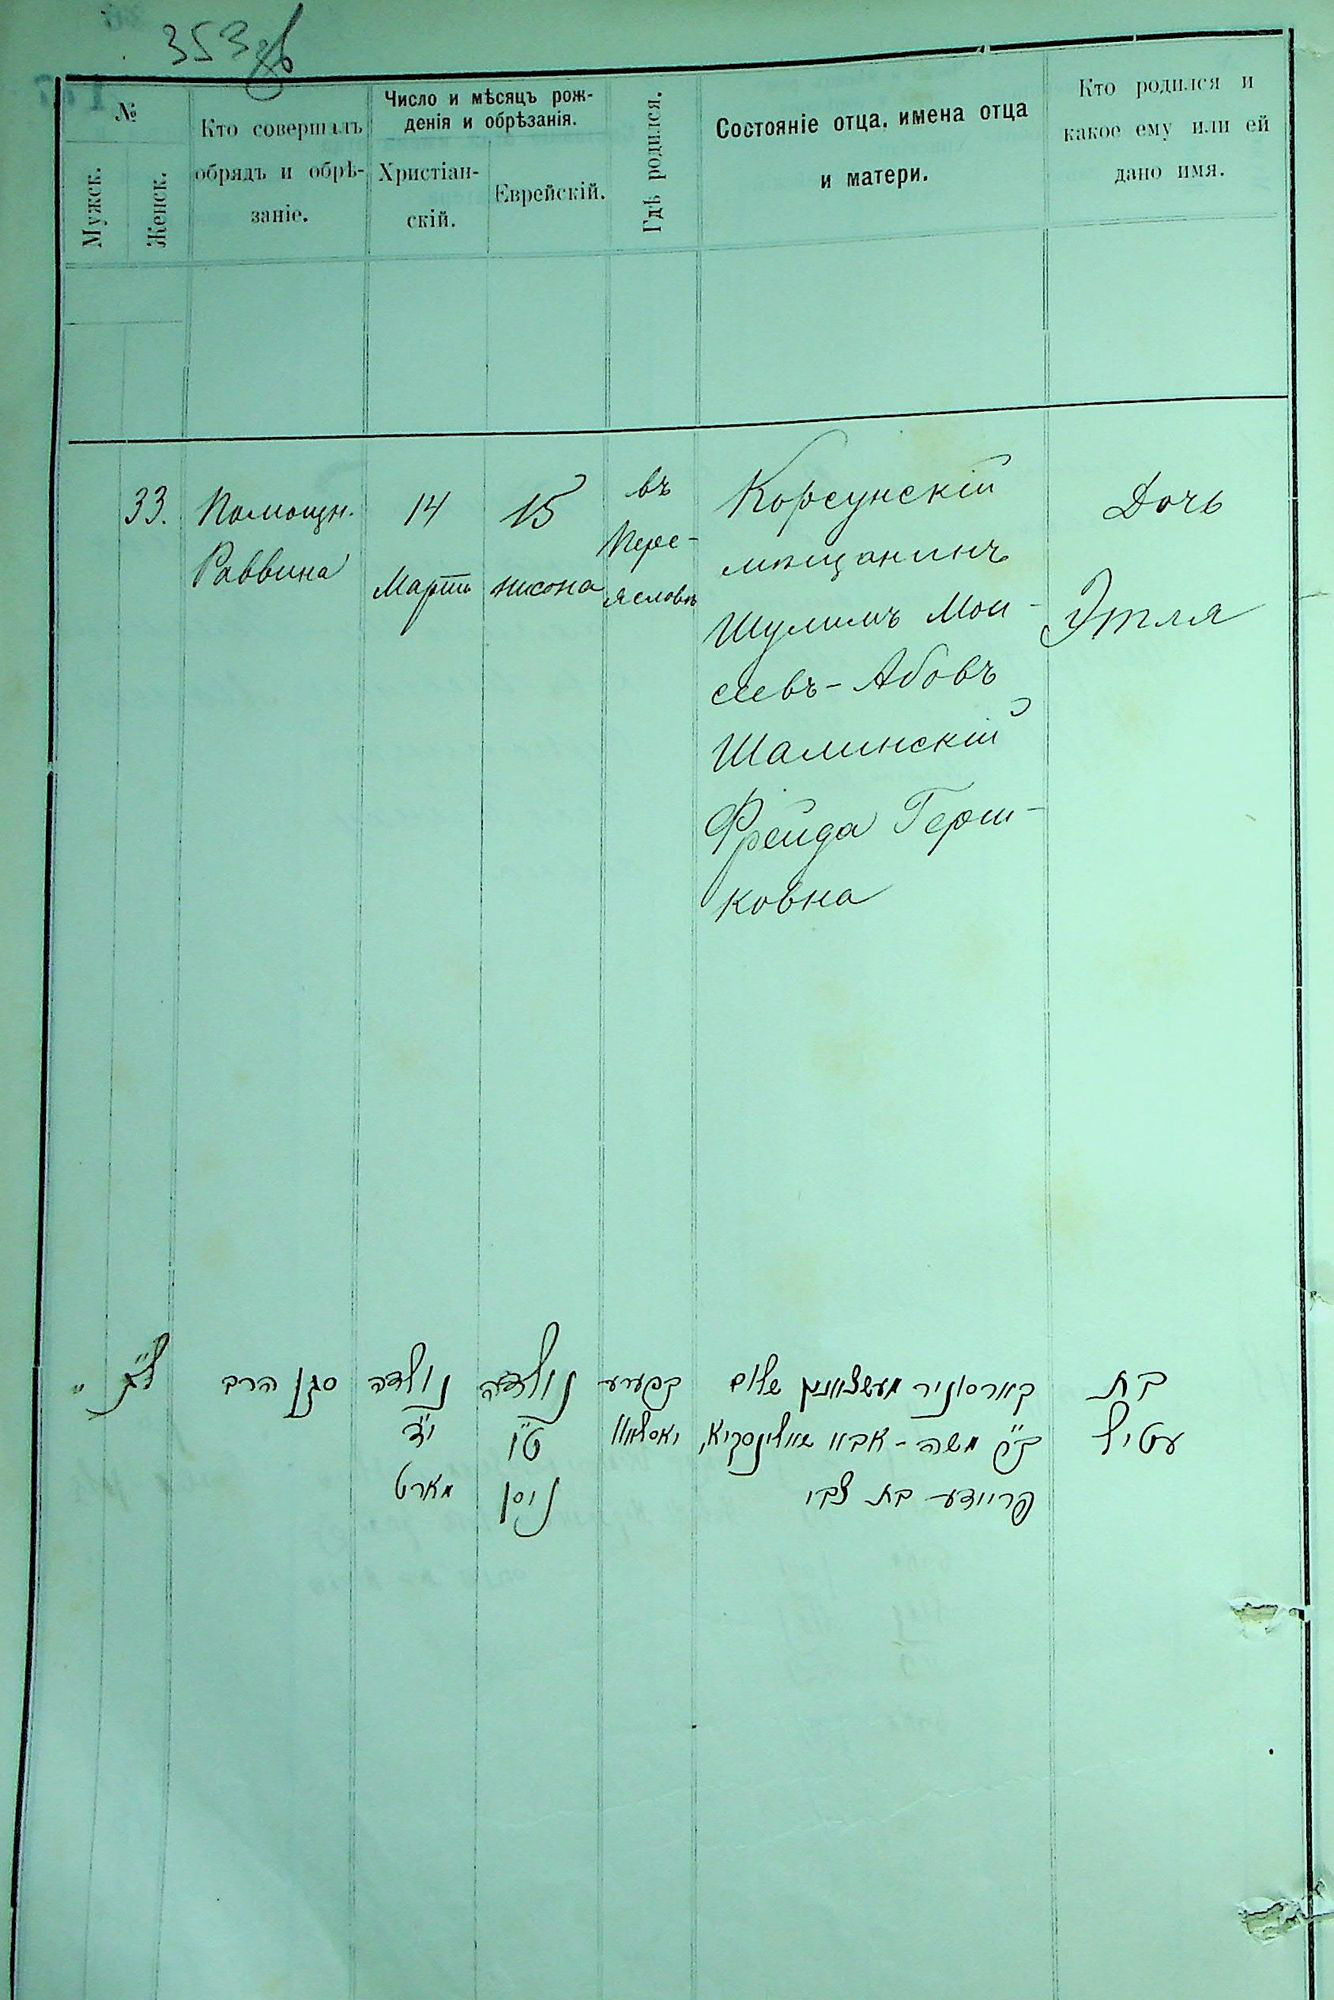 353
№
Мужск.
Женск.
Кто совершалъ
обрядъ и обрѣ-
заніе.
Число и мѣсяцъ рож-
денія и обрѣзанія.
Христіан-
скій.
Еврейскій.
Гдѣ родился.
Состояніе отца, имена отца
и матери.
Кто родился и
какое ему или ей
дано имя.
33.
Помощн.
Раввина
14
Мартъ
15
нисона
въ
Пере-
яславѣ
Корсунскій
мѣщанинъ
Шулимъ Мои-
сеевъ-Абовъ
Шалинскій
Фрейда Герш-
ковна
Дочь
Этля
ל״ג
סגן הרב
נולדה
י״ד
מארט
נולדה
ט״ו
ניסן
בפערע
יאסלאוו
קאורסוניר מעשצאנין שלום
ב״ר משה - אבא שאלינסקיא,
פריידע בת צבי
בת
עטיל